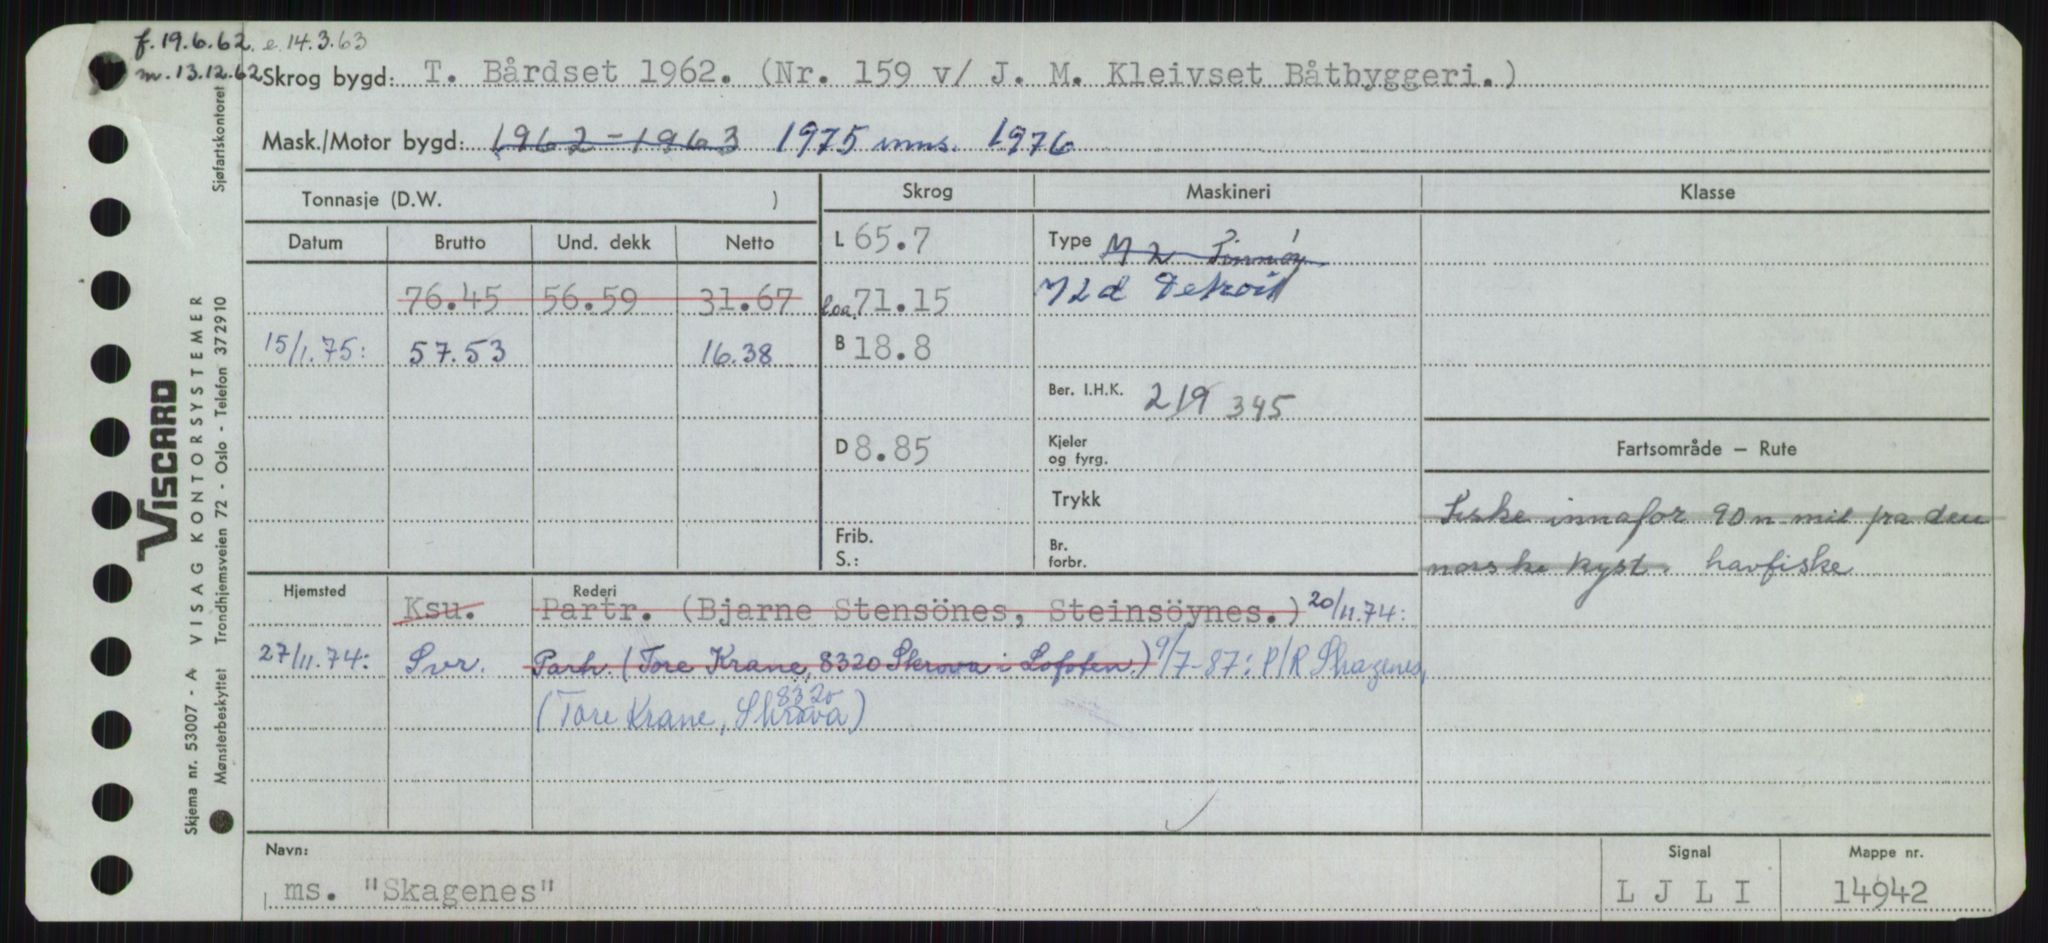 f. 19.6.62. e. 14.3.63
m. 13.12.62 Skrog bygd: T. Bårdset 1962. (Nr. 159 v/ J. M. Kleivset Båtbyggeri.)
Mask./Motor bygd: 1962-1963 1975 inns. 1976
Tonnasje (D.W. ) Skrog Maskineri Klasse
Datum Brutto Und. dekk Netto L 65.7 Type M 2 Finnöy
76.45 56.59 31.67 loa. 71.15 M2d Detroit
15/1.75: 57.53 16.38 B 18.8
Ber. I.H.K. 219 345
D 8.85 Kjeler og fyrg. Fartsområde – Rute
Trykk Fiske innafor 90 n mil fra den
Frib. S.: Br. forbr. norske kyst. havfiske
Hjemsted Rederi
Ksu. Partr. (Bjarne Stensönes, Steinsöynes.) 20/11.74:
27/11.74: Svr. Parh. (Tore Krane, 8320 Skrova i Lofoten.) 9/7-87: P/R Skagenes,
(Tore Krane, 8320 Skrova)
Navn: Signal Mappe nr.
ms. "Skagenes" L J L I 14942
VISCARD
Skjema nr. 53007 - A VISAG KONTORSYSTEMER
Mønsterbeskyttet Trondhjemsveien 72 - Oslo - Telefon 372910 Sjøfartskontoret